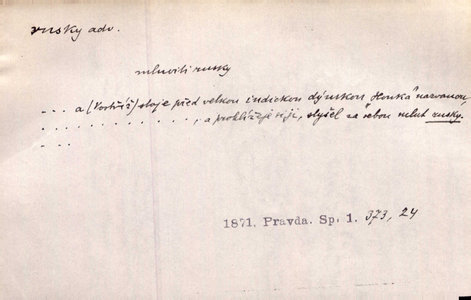 rusky adv.
mluviti rusky
... a (Vostřáž) stoje před velkou indickou dýmkou "Houká" nazvanou,
........., a prohlížeje si ji, slyšel za sebou mluvit rusky.
...
1871. Pravda. Sp. 1. 373, 24